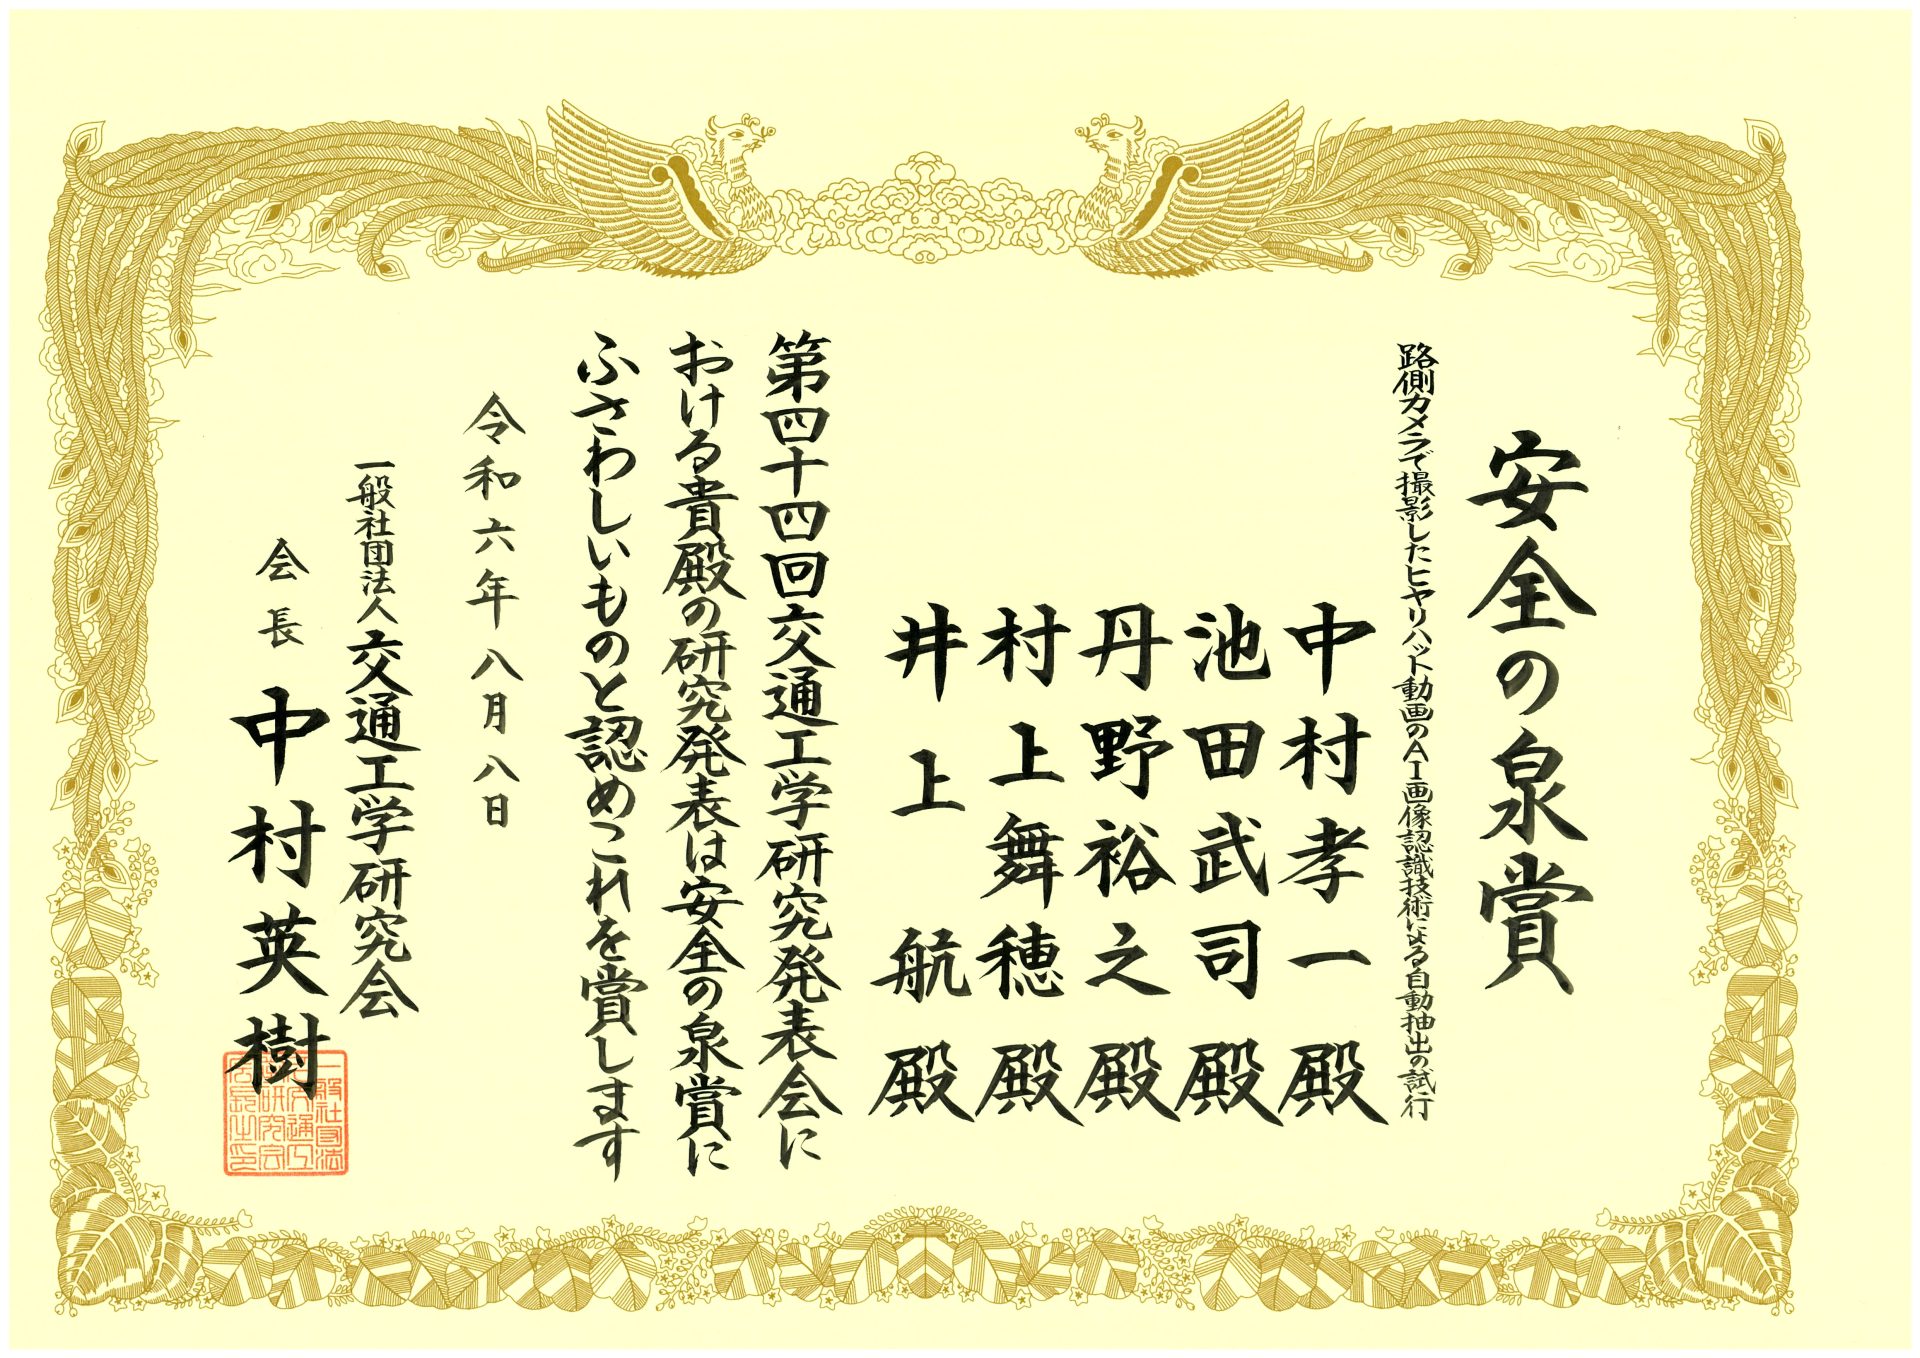 安全の泉賞
路側カメラで撮影したヒヤリハット動画のAI画像認識技術による自動抽出の試行
中村孝一殿
池田武司殿
丹野裕之殿
村上舞穂殿
井上航殿
第四十四回交通工学研究発表会に
おける貴殿の研究発表は安全の泉賞に
ふさわしいものと認めこれを賞します
令和六年八月八日
一般社団法人交通工学研究会
会長 中村英樹
一般社団法
人交通工
学研究会
会長之印